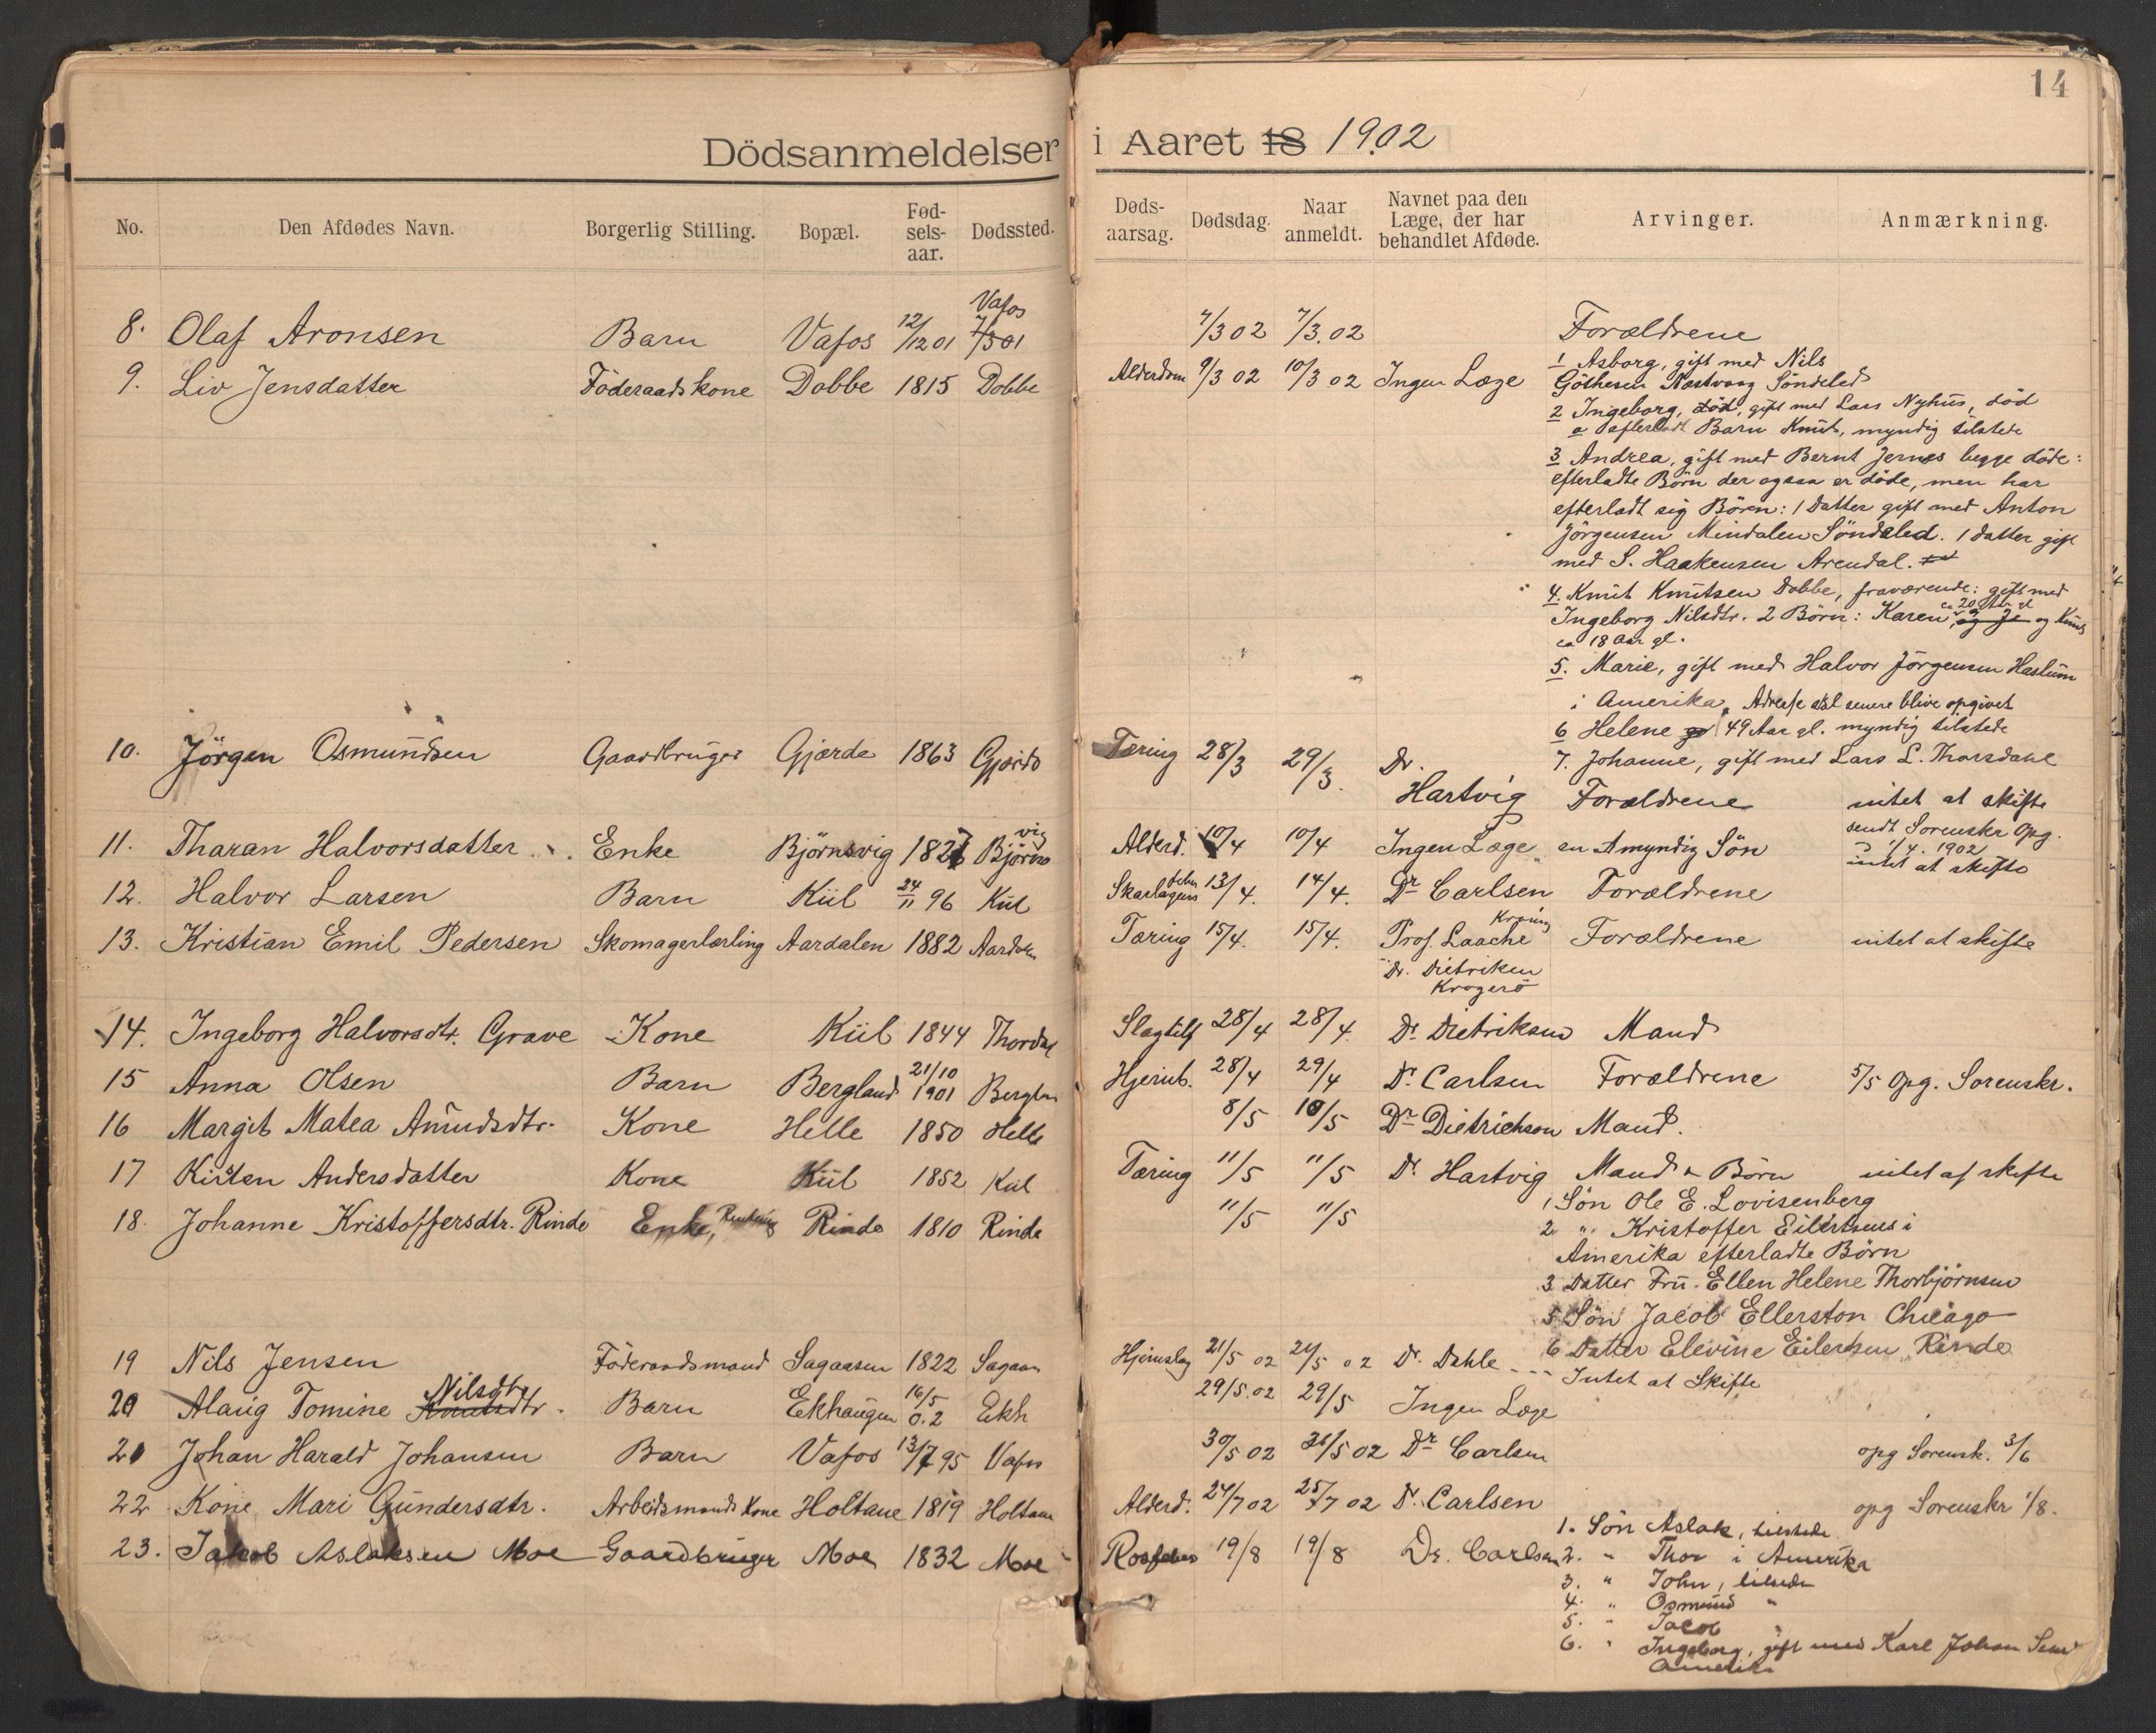 14
Dödsanmeldelser i Aaret 18 1902
No. Den Afdødes Navn. Borgerlig Stilling. Bopæl. Fød-sels-aar. Dødssted. Døds-aarsag. Dødsdag. Naar anmeldt. Navnet paa den Læge, der har behandlet Afdøde. Arvinger. Anmærkning.
8. Olaf Aronsen Barn Vafos 12/12 01 Vafos 7/3 02 7/3.02 Forældrene
9. Liv Jensdatter Föderaadskone Dobbe 1815 Dobbe Alderdom 9/3 02 10/3 02 Ingen Læge
1 Asborg, gift med Nils
Göthesen Næstvaag Söndeled
2 Ingeborg, död, gift med Lars Nyhus, död
a efterladt Barn Knut, myndig tilstede
3 Andrea, gift med Bernt Jernes begge döde:
efterladte Börn der ogsaa er döde, men har
efterladt sig Börn: 1 Datter gift med Anton
Jörgensen Mindalen Söndeled. 1 datter gift
med S. Haakensen Arendal.
4. Knut Knutsen Dobbe, fraværende: gift med
Ingeborg Nilsdtr. 2 Börn: Karen ca 20 Aar gl og Knut
ca 18 Aar gl.
5. Marie, gift med Halvor Jörgensen Haslum
i Amerika, Adresse skal senere blive opgivet
6 Helene 49 Aar gl. myndig tilstede
7. Johanne, gift med Lars L. Thorsdal
10. Jörgen Osmundsen Gaardbruger Gjerde 1863 Gjerde Tæring 28/3 29/3. Dr. Hartvig Forældrene intet at skifte
sendt Sorenskr Opg.
1/4. 1902
11. Tharan Halvorsdatter Enke Björnsvig 1827 Björnsvig Alderd. 10/4 10/4 Ingen Læge en myndig Sön intet at skifte
12. Halvor Larsen Barn Kiil 24/11 96 Kiil Skarlagensfeber 13/4. 14/4. Dr Carlsen Forældrene
13. Kristian Emil Pedersen Skomagerlærling Aardalen 1882 Aardalen Tæring 15/4. 15/4. Prof. Laache Forældrene intet at skifte
Dr. Dietriksen
Kragerö
14. Ingeborg Halvorsdtr. Grave Kone Kiil 1844 Thordal Slagtilf 28/4 28/4. Dr Dietriksen Mand
15 Anna Olsen Barn Bergland 21/10 1901 Berglan Hjernb. 28/4 29/4 Dr Carlsen Forældrene 5/5 Opg. Sorenskr.
16 Margit Matea Amundsdtr. Kone Helle 1850 Helle 8/5 10/5 Dr Dietrichson Mand.
17 Kirsten Andersdatter Kone Kiil 1852 Kiil Tæring 11/5 11/5 Dr. Hartvig Mand & Börn intet at skifte
18. Johanne Kristoffersdtr. Rinde Enke, Rinde 1810 Rinde 11/5 11/5
1 Sön Ole E. Lovisenberg
2 " Kristoffer Eilertsens i
Amerika efterladte Börn
3 Datter Fru Ellen Helene Thorbjörnsen
5 Sön Jacob Ellerston Chicago
6 Datter Elevine Eilertsen Rinde
19 Nils Jensen Föderaadsmand Sagaasen 1822 Sagaasen Hjerneslag 21/5 02 21/5 02 Dr. Dahle Intet at Skifte
20 Alaug Tomine Nilsdtr. Barn Eikhaugen 16/5 0.2 Eikh 29/5.02 29/5 Ingen Læge
21 Johan Harald Johansen Barn Vafos 13/7 95 Vafos 30/5 02 31/5 02 Dr Carlsen opg Sorensk. 3/6
22 Kone Mari Gundersdtr. Arbeidsmands Kone Holtane 1819 Holtane Alderd. 24/7 02 25/7 02 Dr. Carlsen opg Sorenskr 1/8.
23. Jakob Aslaksen Moe Gaardbruger Moe 1832 Moe Rosfeber 19/8 19/8 Dr. Carlsen
1. Sön Aslak, tilstede
2. " Thor i Amerika
3. " John, tilstede
4. " Osmund "
5. " Jacob "
6. " Ingeborg, gift med Karl Johan
Amerika